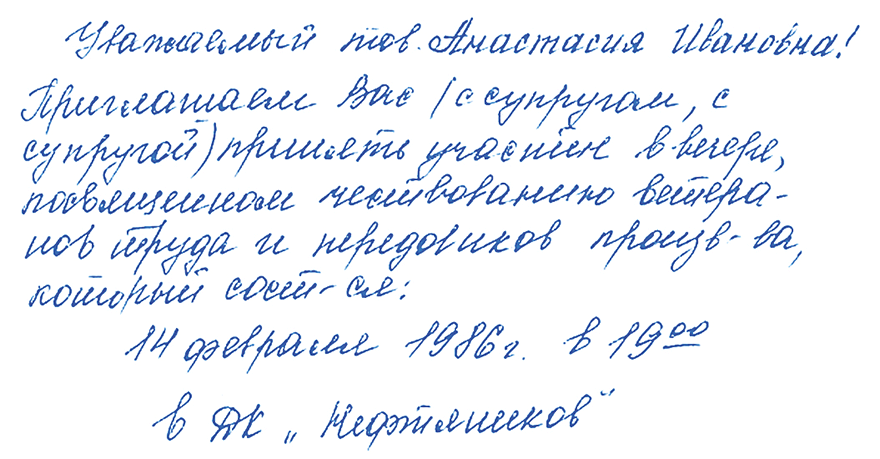 Уважаемый тов. Анастасия Ивановна!
Приглашаем Вас (с супругом, с
супругой) принять участие в вечере,
посвященном чествованию ветера-
нов труда и передовиков произв-ва,
который сост-ся:
14 февраля 1986 г. в 19⁰⁰
в ДК „Нефтяников"